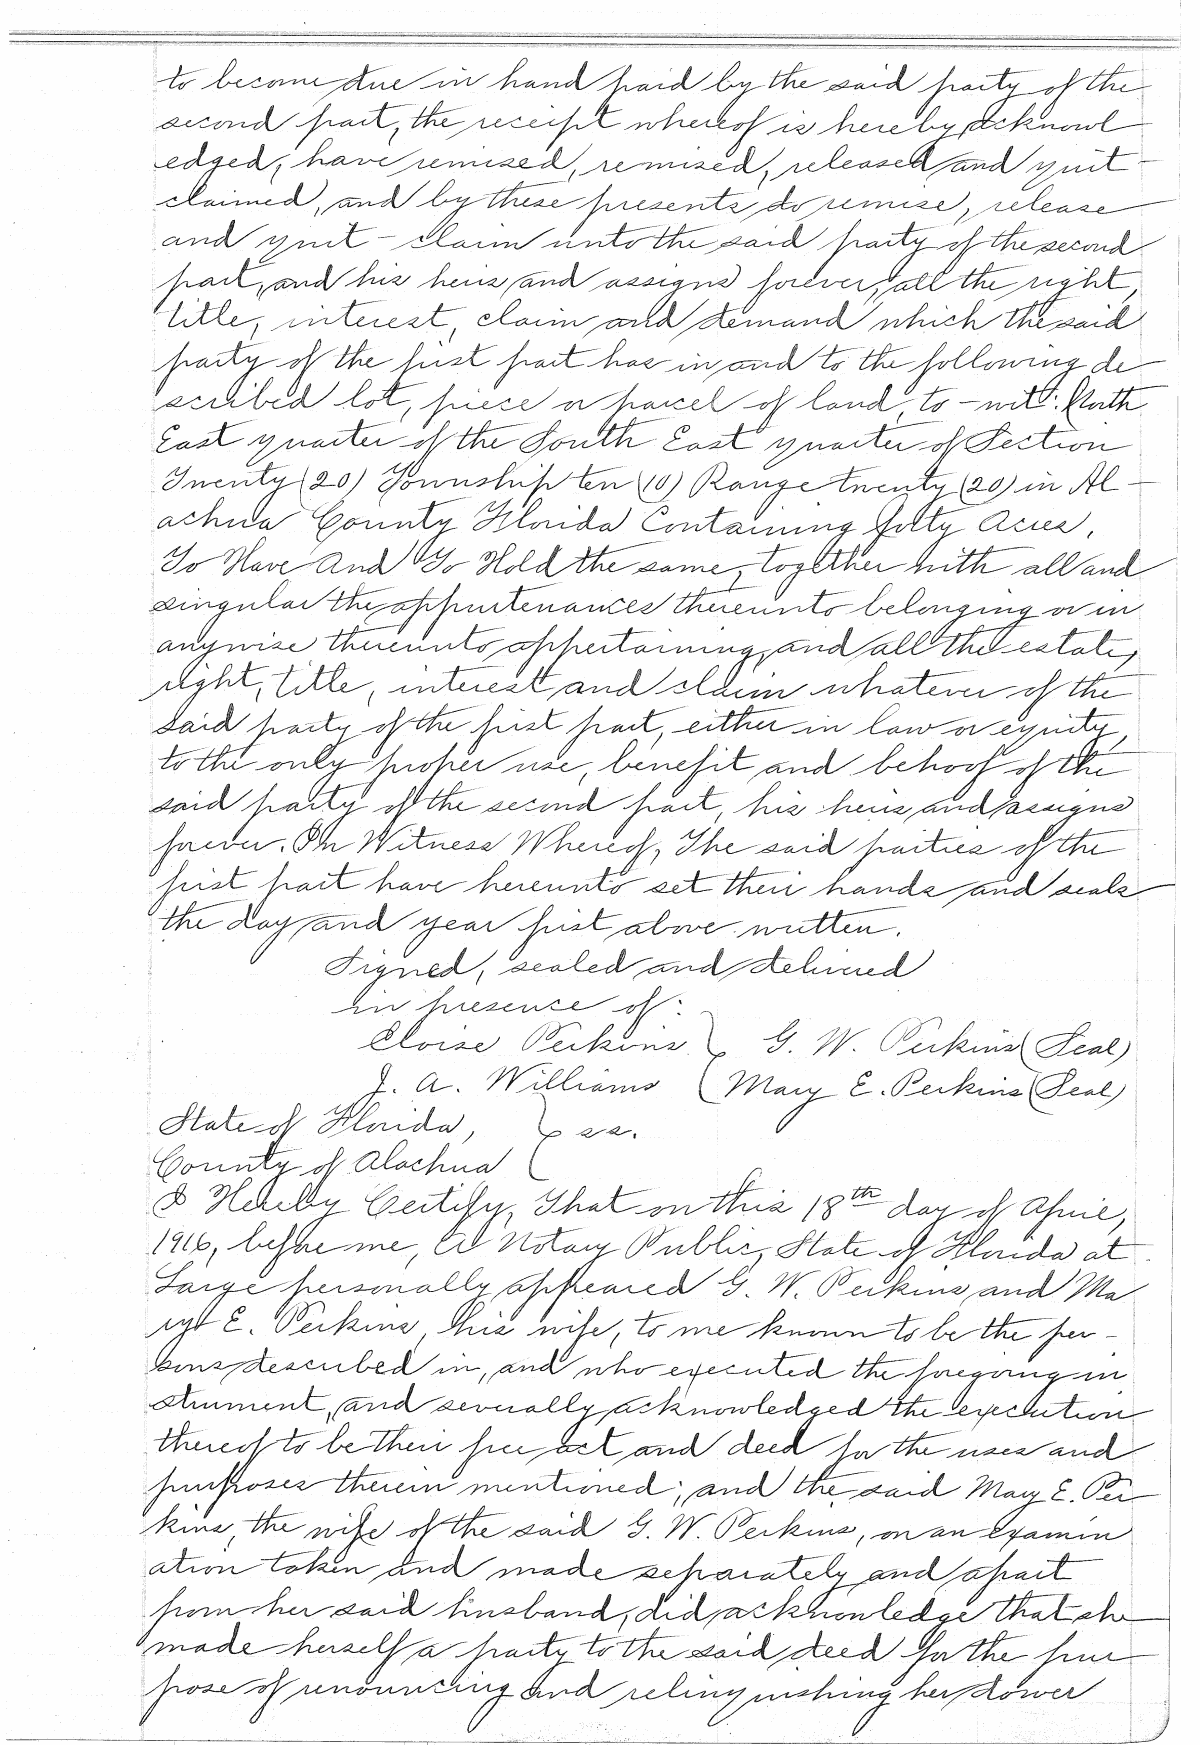 to become due in hand paid by the said party of the
second part, the receipt whereof is hereby acknowl
edged, have remised, remised, released and quit -
claimed, and by these presents do remise, release
and quit - claim unto the said party of the second
part, and his heirs and assigns forever, all the right,
title, interest, claim and demand which the said
party of the first part has in and to the following de
scribed lot, piece or parcel of land, to - wit: North
East quarter of the South East quarter of Section
Twenty (20) Township ten (10) Range twenty (20) in Al -
achua County Florida Containing forty Acres.
To Have And To Hold the same, together with all and
singular the appurtenances thereunto belonging or in
anywise thereunto appertaining, and all the estate,
right, title, interest and claim whatever of the
said party of the first part, either in law or equity,
to the only proper use, benefit and behoof of the
said party of the second part, his heirs and assigns
forever. In Witness Whereof, The said parties of the
first part have hereunto set their hands and seals
the day and year first above written.
Signed, sealed and delivered
in presence of:
Eloise Perkins } G. W. Perkins (Seal)
J. A. Williams Mary E. Perkins (Seal)
State of Florida, } ss.
County of Alachua
I Hereby Certify, That on this 18th day of April,
1916, before me, A Notary Public, State of Florida at
Large personally appeared G. W. Perkins and Ma
ry E. Perkins, his wife, to me known to be the per -
sons described in, and who executed the foregoing in
strument, and severally acknowledged the execution
thereof to be their free act and deed for the uses and
purposes therein mentioned; and the said Mary E. Per
kins, the wife of the said G. W. Perkins, on an examin
ation taken and made separately and apart
from her said husband, did acknowledge that she
made herself a party to the said deed for the pur
pose of renouncing and relinquishing her dower